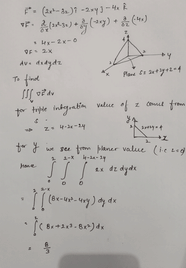 F⃗ = (2x²-3z)î - 2xyĵ - 4x k̂
∇·F⃗ = ∂/∂x (2x²-3z) + ∂/∂y (-2xy) + ∂/∂z (-4x)
= 4x - 2x - 0
∇F = 2x
dV = dxdydz
Plane S: 2x+2y+z=4
To find
∭ ∇F dv
for triple integration value of z comes from
S.
⇒ z = 4-2x-2y
for y we see from planer value (i.e z=0)
Hence ∫₀² ∫₀^(2-x) ∫₀^(4-2x-2y) 2x dz dy dx
= ∫₀² ∫₀^(2-x) (8x-4x²-4xy) dy dx
= ∫₀² (8x+2x³-8x²) dx
= 8/3